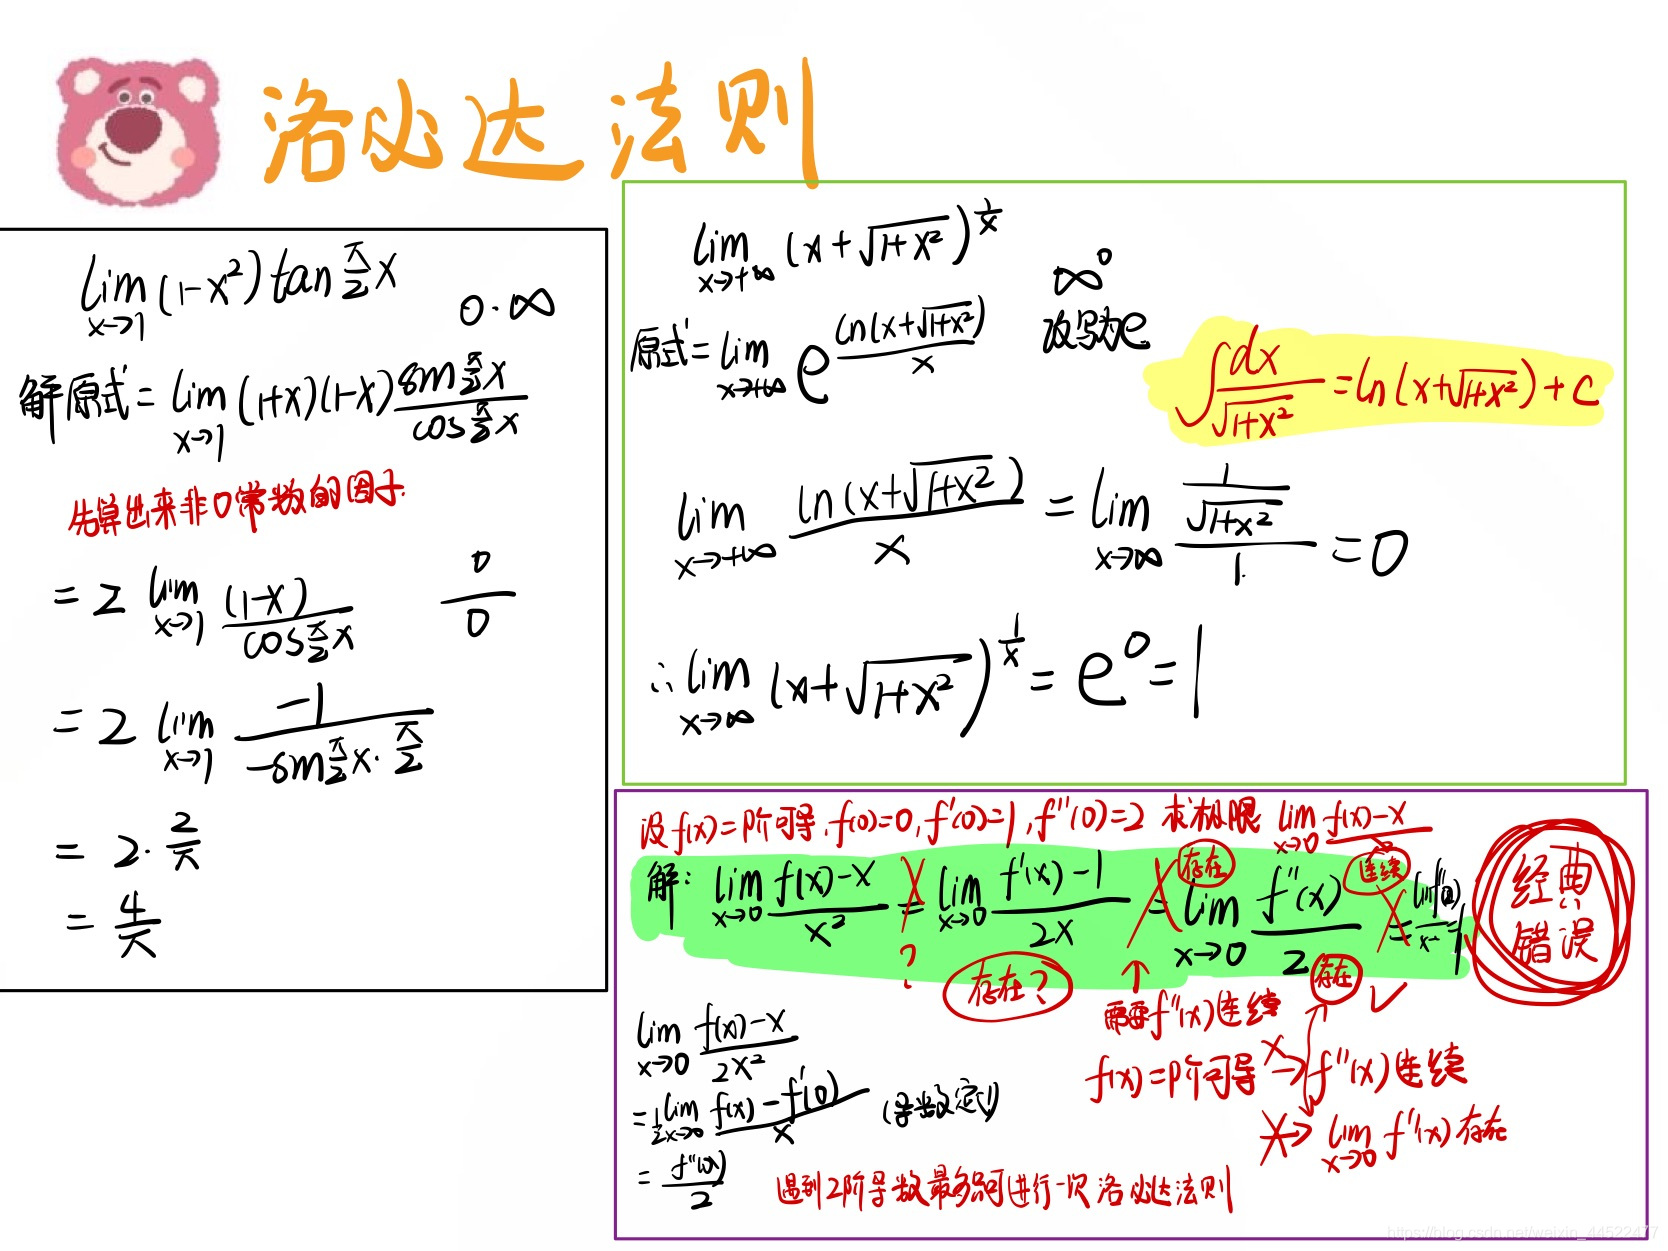 洛必达法则
lim x→1 (1-x²) tan π/2 x
0·∞
解原式 = lim x→1 (1+x)(1-x) sin π/2 x / cos π/2 x
先算出来非0常数的因子
= 2 lim x→1 (1-x) / cos π/2 x
0/0
= 2 lim x→1 -1 / -sin π/2 x · π/2
= 2 · 2/π
= 4/π
lim x→+∞ (x+√1+x²)^1/x
∞⁰
改写为e
原式 = lim x→+∞ e^ln(x+√1+x²)/x
∫ dx/√1+x² = ln(x+√1+x²)+C
lim x→+∞ ln(x+√1+x²)/x = lim x→∞ 1/√1+x² / 1 = 0
∴ lim x→∞ (x+√1+x²)^1/x = e⁰ = 1
设f(x)二阶可导, f(0)=0, f'(0)=1, f''(0)=2 求极限 lim x→0 f(x)-x / x²
解: lim x→0 f(x)-x / x² = lim x→0 f'(x)-1 / 2x = lim x→0 f''(x) / 2
存在
连续
经典
错误
?
存在?
↑
需要f''(x)连续
存在
✓
lim x→0 f(x)-x / 2x²
f(x)二阶可导 → f''(x)连续
= 1/2 lim x→0 f(x)-f'(0) / x (导数定义)
→ lim x→0 f''(x)存在
= f''(x) / 2
遇到2阶导数最多只可进行一次洛必达法则
https://blog.csdn.net/weixin_44522477